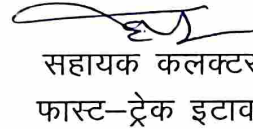 सहायक कलक्टर
फास्ट–ट्रेक इटाव